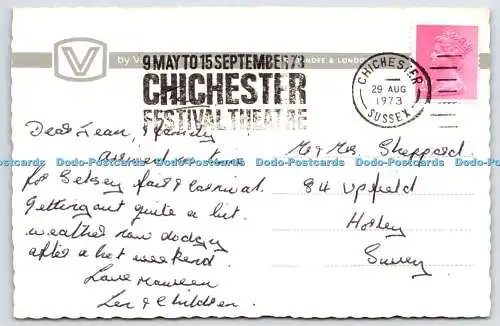 V
by V
DUNDEE & LONDON
9 MAY TO 15 SEPTEMBER 73
CHICHESTER
FESTIVAL THEATRE
CHICHESTER
29 AUG
1973
SUSSEX
Dear Jean, & Family
Arrived on time
for Selsey fair & carnival.
Getting out quite a bit.
weather now dodgy
after a hot weekend.
Love Maureen
Len & Children.
Mr & Mrs. Sheppard.
84 Upfield
Horley
Surrey
Dodo-Postcards Dodo-Postcards Dodo-Postcards Dodo-Postcards Dodo-Postcards